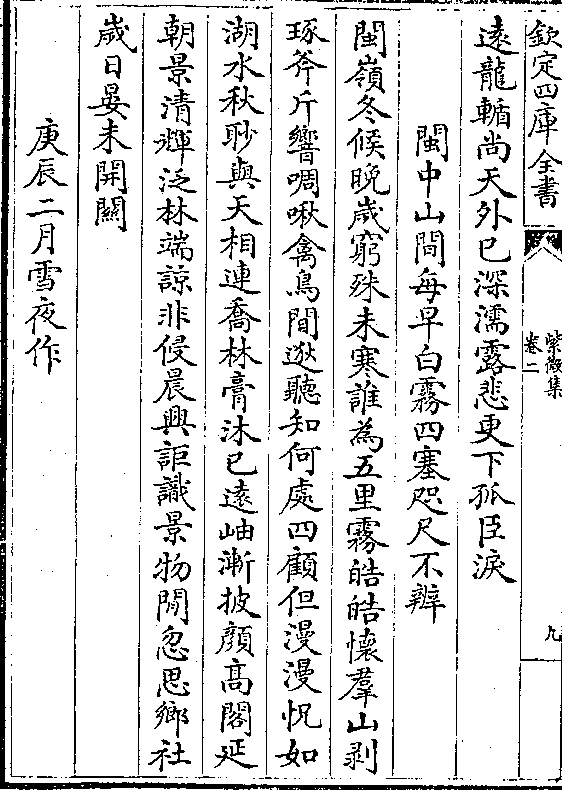 欽定四庫全書
紫微集
卷二
九
遠龍輴尚天外已深濡露悲更下孤臣淚
閩中山間每早白霧四塞咫尺不辨
閩嶺冬候晚歲窮殊未寒誰為五里霧皓皓懷羣山剥
琢斧斤響啁啾禽鳥間逖聽知何處四顧但漫漫怳如
湖水秋眇與天相連喬林膏沐已遠岫漸披顔高閣延
朝景清輝泛林端諒非侵晨興詎識景物閒忽思鄉社
歲日晏未開闗
庚辰二月雪夜作